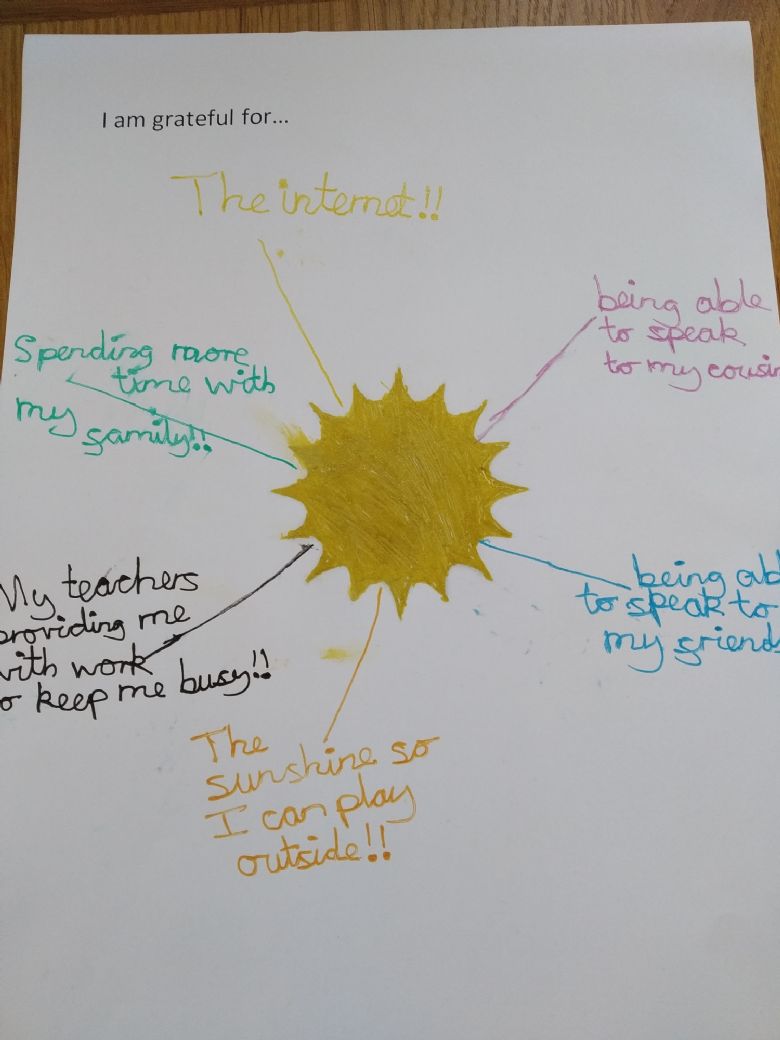 I am grateful for...
The internet!!
being able
to speak
to my cousin
Spending more
time with
my family!!
My teachers
providing me
with work
to keep me busy!!
being abl
to speak to
my friends
The
sunshine so
I can play
outside!!